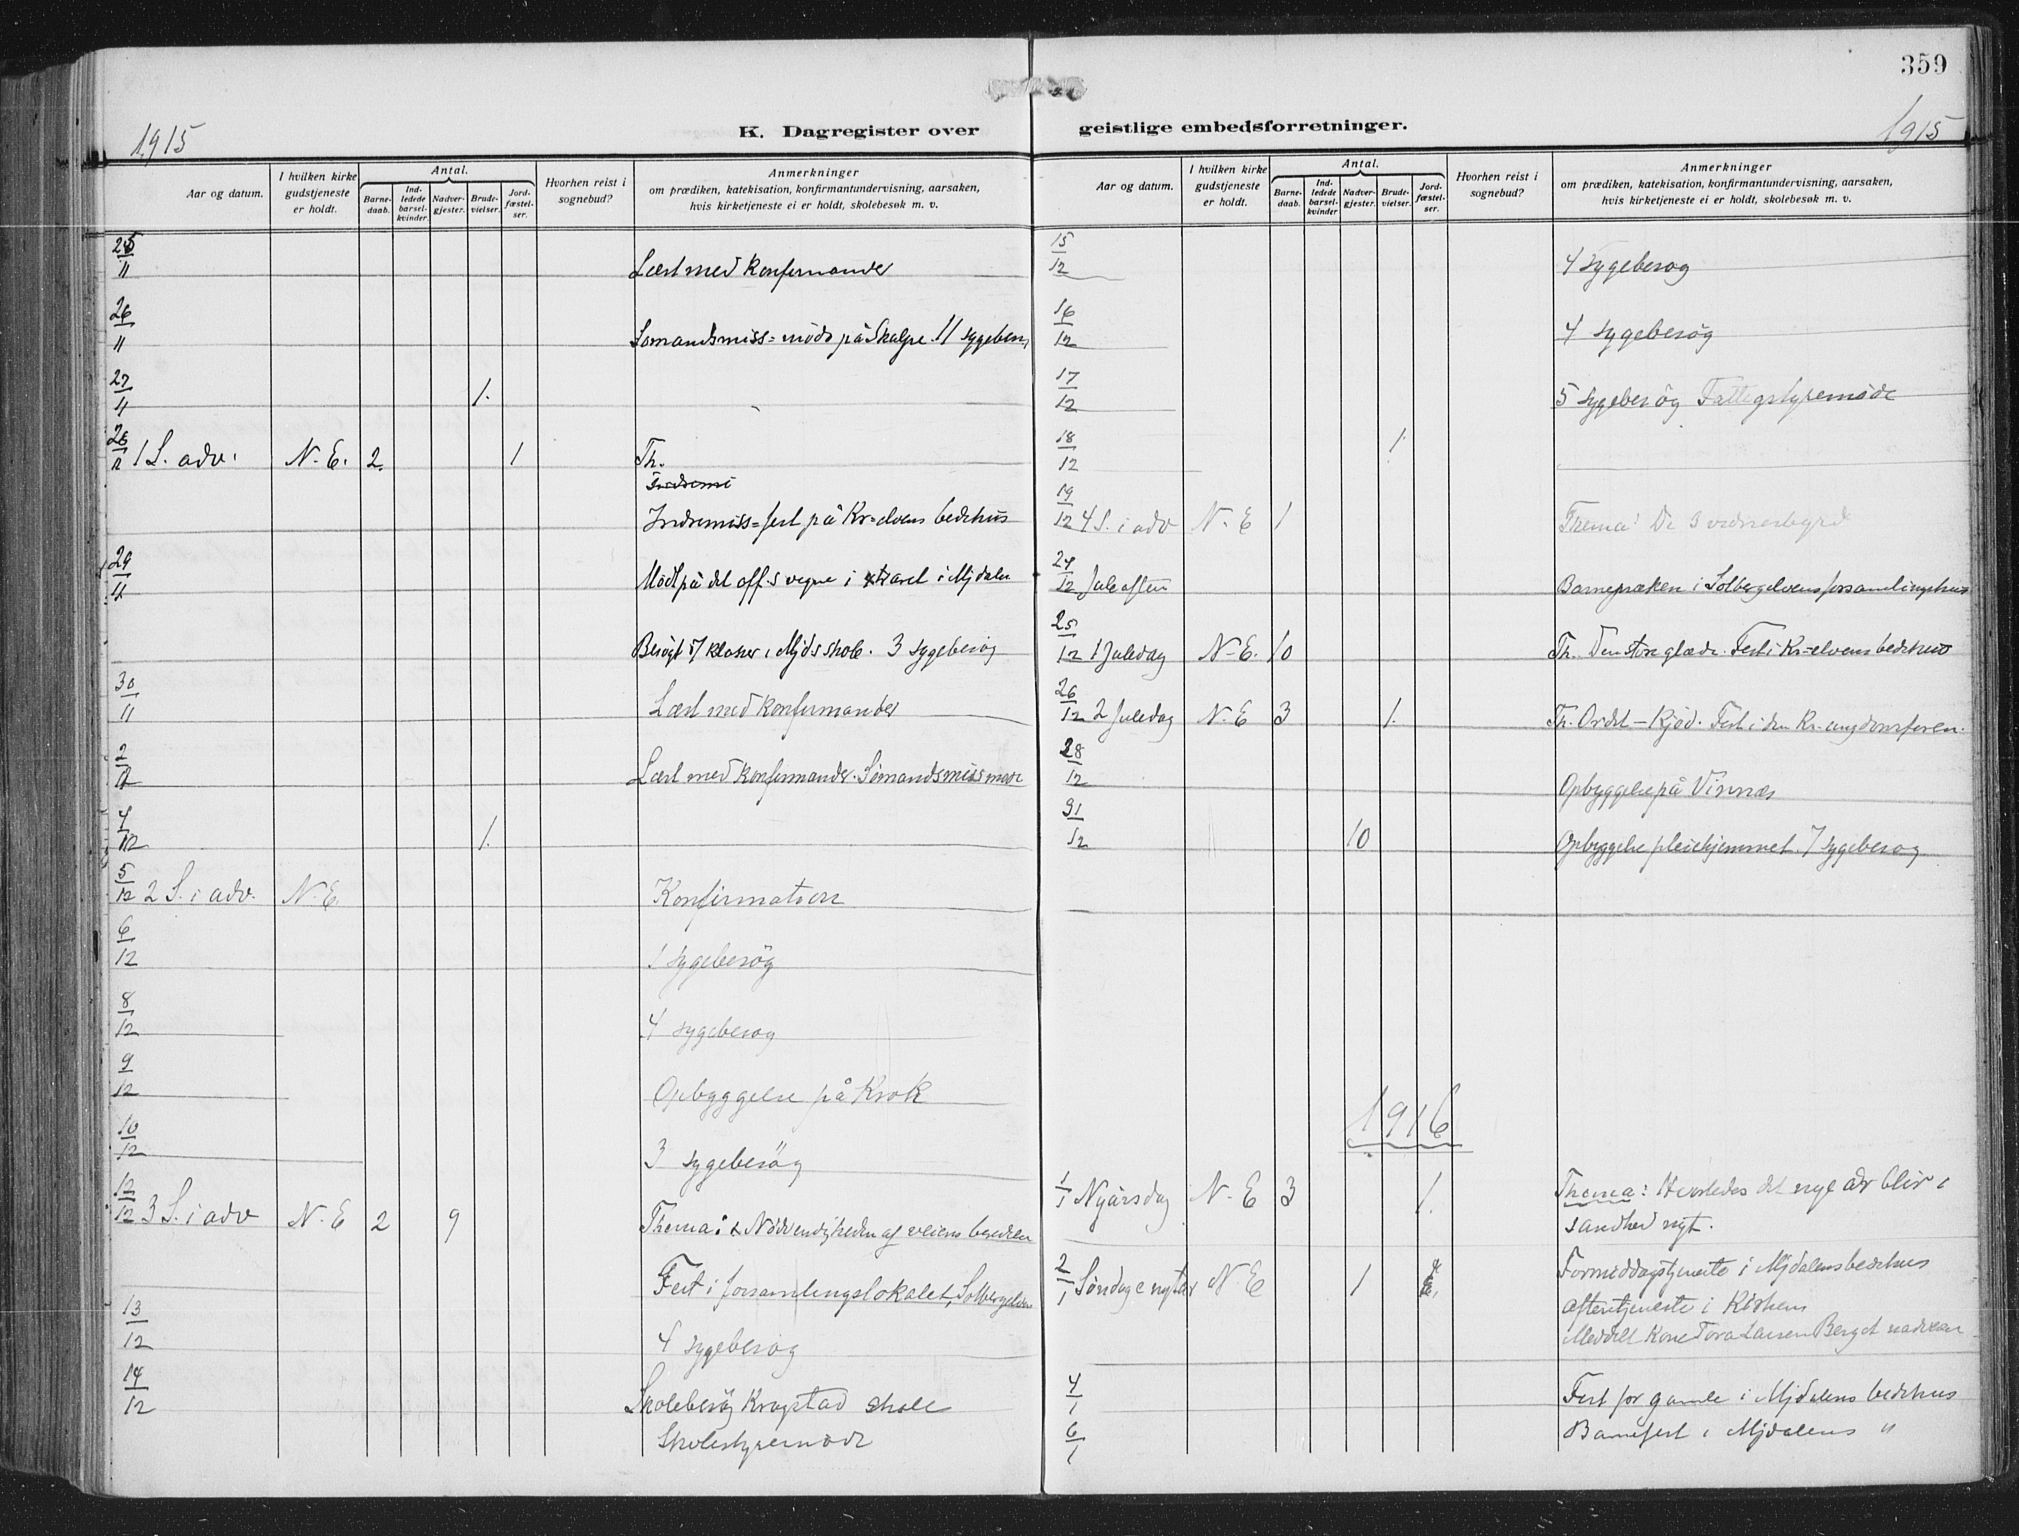 359
1915
K. Dagregister over
Aar og datum.
I hvilken kirke gudstjeneste er holdt.
Antal.
Barnedaab.
Indledede barselkvinder.
Nadvergjester.
Brudevielser.
Jordfæstelser.
Hvorhen reist i sognebud?
Anmerkninger
om prædiken, katekisation, konfirmantundervisning, aarsaken,
hvis kirketjeneste ei er holdt, skolebesøk m. v.
25/11 Læst med Konfirmander
26/11 Sømandsmiss= møde på Skalpe 11 sygebesøg
27/11 1.
28/11 1 S. adv. N. E. 2 1 Th.
Indremiss=fest på Kr=elvens bedehus
29/11 Mødt på det off.s vegne i i Mjdalen
Besøgt 5/ klasser i Mjds skole. 3 sygebesøg
30/11 Læst med Konfirmander
2/12 Læst med Konfirmander. Sømandsmissmøde
4/12 1.
5/12 2 S. i adv. N. E. Konfirmation
6/12 1 sygebesøg
8/12 4 sygebesøg
9/12 Opbyggelse på Krok
10/12 3 sygebesøg
12/12 3 S. i adv N. E 2 9 Thema: Nødvendigheden af veiens
Fest i forsamlingslokalet, Solbergelven
13/12 4 sygebesøg
14/12 Skolebesøg Kragstad skole
Skolestyremøde
1915
geistlige embedsforretninger.
Aar og datum.
I hvilken kirke gudstjeneste er holdt.
Antal.
Barnedaab.
Indledede barselkvinder
Nadvergjester.
Brudevielser.
Jordfæstelser.
Hvorhen reist i sognebud?
Anmerkninger
om prædiken, katekisation, konfirmantundervisning, aarsaken,
hvis kirketjeneste ei er holdt, skolebesøk m. v.
15/12 4 sygebesøg
16/12 4 sygebesøg
17/12 5 sygebesøg Fattigstyremøde
18/12 1.
19/12 4 S. i adv N. E 1 Thema: De 3 vidnesbyrd
24/12 Juleaften Barnepræken i Solbergelvens forsamlingshus
25/12 1 Juledag N. E. 10 Th. Den store glæde. Fest i Kr-elvens bedehus
26/12 2 Juledag N. E 3 1. Th. Ordet - Kjød. Fest i den Kr. ungdomsforen.
28/12 Opbyggelse på Vinnæs
31/12 10 Opbyggelse pleiehjemmet. 7 sygebesøg
1916
1/1 Nyårsdag N. E 3 1. Thema: Hvorledes det nye år blir i
sandhed nyt.
2/1 Søndag e nytår N. E 1 Formiddagstjeneste i Mjdalens bedehus
aftentjeneste i Kirken
Meddelt Kone Tora Larsen Berget nadveren
4/1 Fest for gamle i Mjdalens bedehus
6/1 Barnefest i Mjdalens "